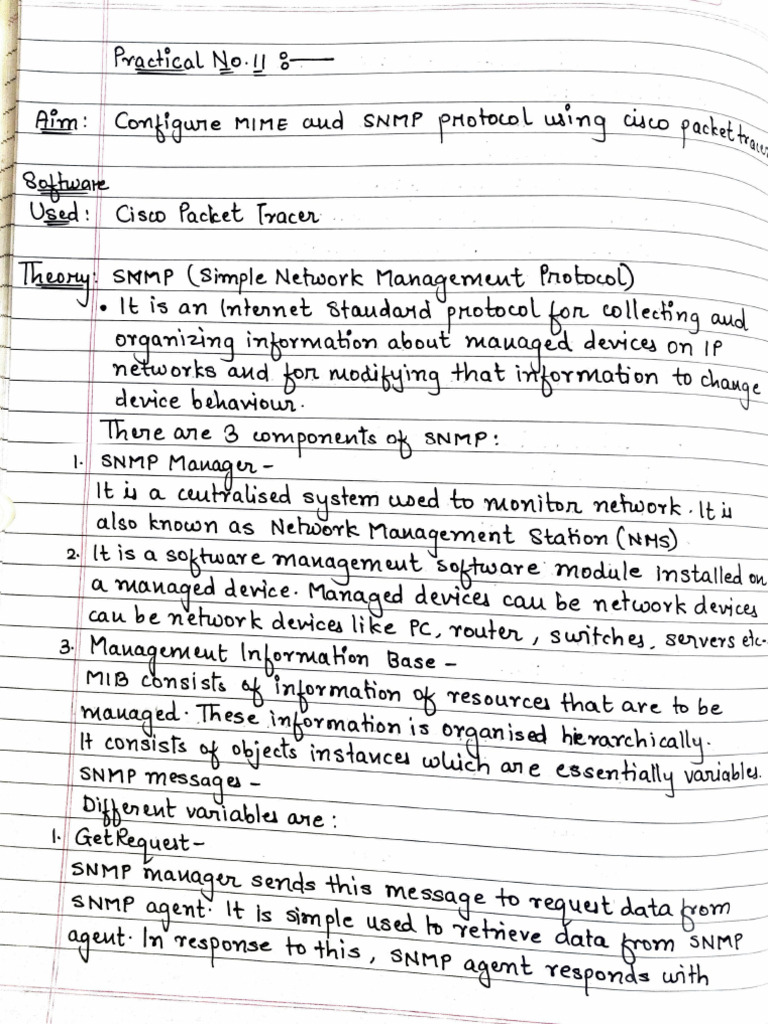 Practical No. 11 :—
Aim: Configure MIME and SNMP protocol using cisco packet tracer
Software
Used: Cisco Packet Tracer
Theory: SNMP (Simple Network Management Protocol)
• It is an Internet Standard protocol for collecting and
organizing information about managed devices on IP
networks and for modifying that information to change
device behaviour.
There are 3 components of SNMP:
1. SNMP Manager -
It is a centralised system used to monitor network. It is
also known as Network Management Station (NMS)
2. It is a software management software module installed on
a managed device. Managed devices can be network devices
can be network devices like PC, router, switches, servers etc.
3. Management Information Base -
MIB consists of information of resources that are to be
managed. These information is organised hierarchically.
It consists of objects instances which are essentially variables.
SNMP messages -
Different variables are:
1. GetRequest -
SNMP manager sends this message to request data from
SNMP agent. It is simple used to retrieve data from SNMP
agent. In response to this, SNMP agent responds with